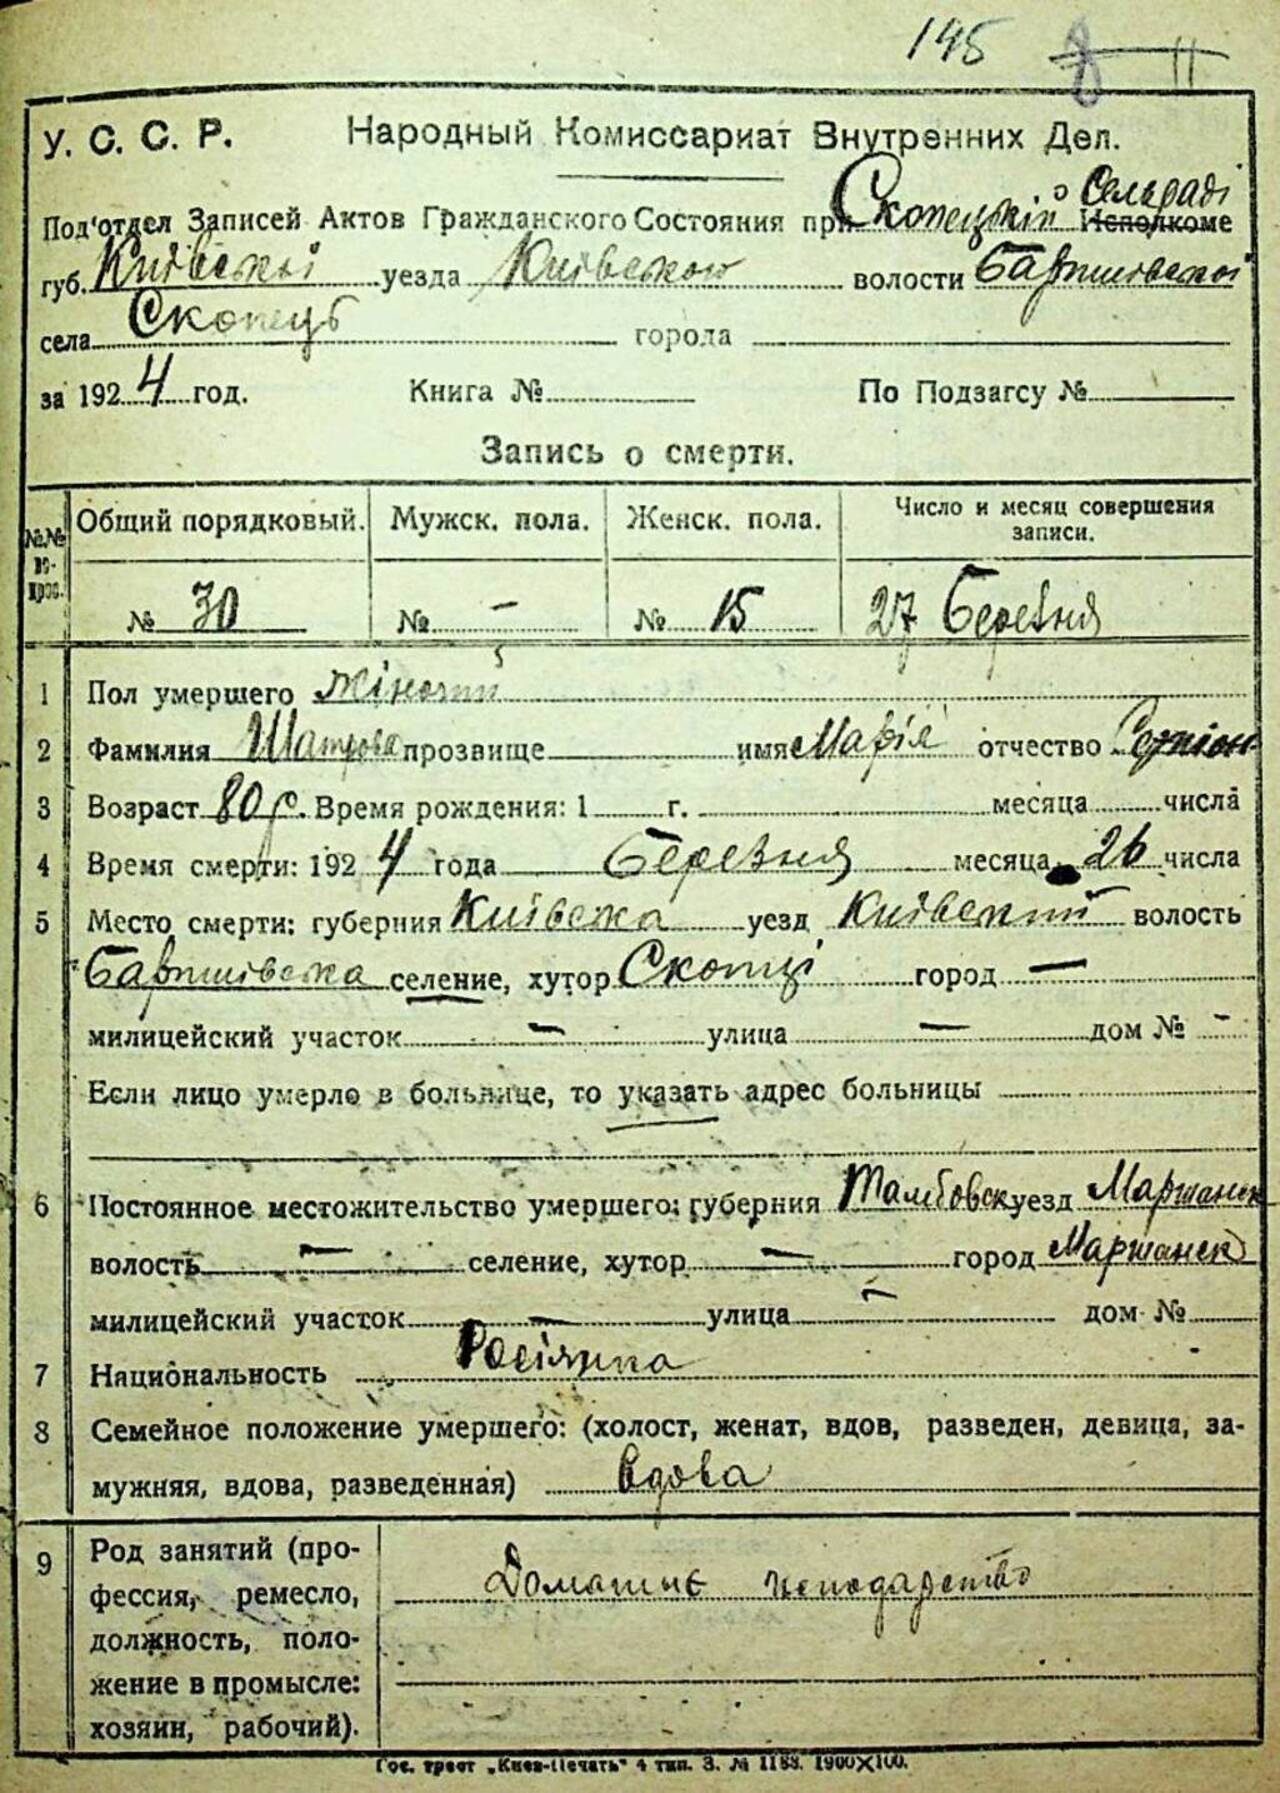 145 8 11
У. С. С. Р. Народный Комиссариат Внутренних Дел.
Под'отдел Записей Актов Гражданского Состояния при Скопецкій Сельраді Исполкоме
губ. Київської уезда Київського волости Баришівської
села Скопець города
за 1924 год. Книга № По Подзагсу №
Запись о смерти.
№№ вопрос. Общий порядковый. Мужск. пола. Женск. пола. Число и месяц совершения записи.
№ 30 № – № 15 27 Березня
1 Пол умершего Жіночий
2 Фамилия Шатрова прозвище имя Марія отчество
3 Возраст 80 р. Время рождения: 1 г. месяца числа
4 Время смерти: 1924 года Березня месяца 26 числа
5 Место смерти: губерния Київська уезд Київский волость
Баришівська селение, хутор Скопці город —
милицейский участок — улица — дом № –
Если лицо умерло в больнице, то указать адрес больницы
6 Постоянное местожительство умершего: губерния Тамбовск уезд Маршанск
волость — селение, хутор — город Маршанск
милицейский участок — улица – дом №
7 Национальность Росіянка
8 Семейное положение умершего: (холост, женат, вдов, разведен, девица, за-
мужняя, вдова, разведенная) вдова
9 Род занятий (про- Домашнє господарство
фессия, ремесло,
должность, поло-
жение в промысле:
хозяин, рабочий).
Гос. трест „Киев-Печать" 4 тип. З. № 1183. 1900×100.